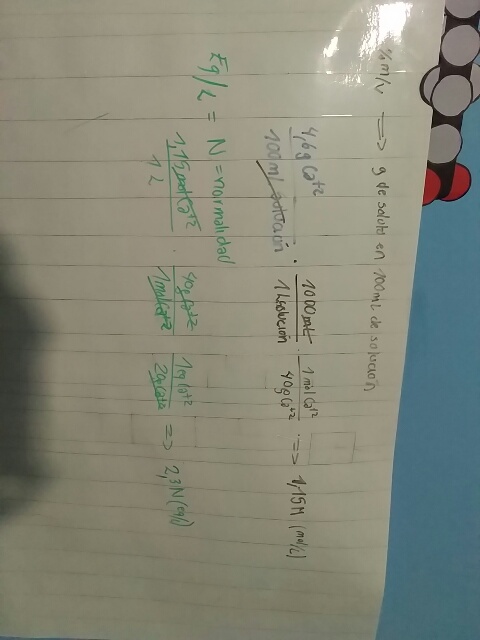 % m/v => g de soluto en 100 ml de solución
4,6g Ca+2 / 100 ml solución · 1000 ml / 1 L solución · 1 mol Ca+2 / 40g Ca+2 => 1,15 M (mol/L)
Eq/L = N = normalidad
1,15 mol Ca+2 / 1 L · 40g Ca+2 / 1 mol Ca+2 · 1 eq Ca+2 / 20g Ca+2 => 2,3 N (eq/L)